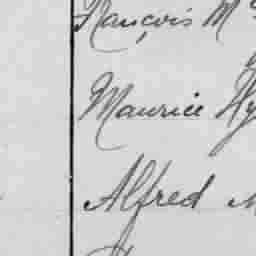 François M
Maurice Hy
Alfred M